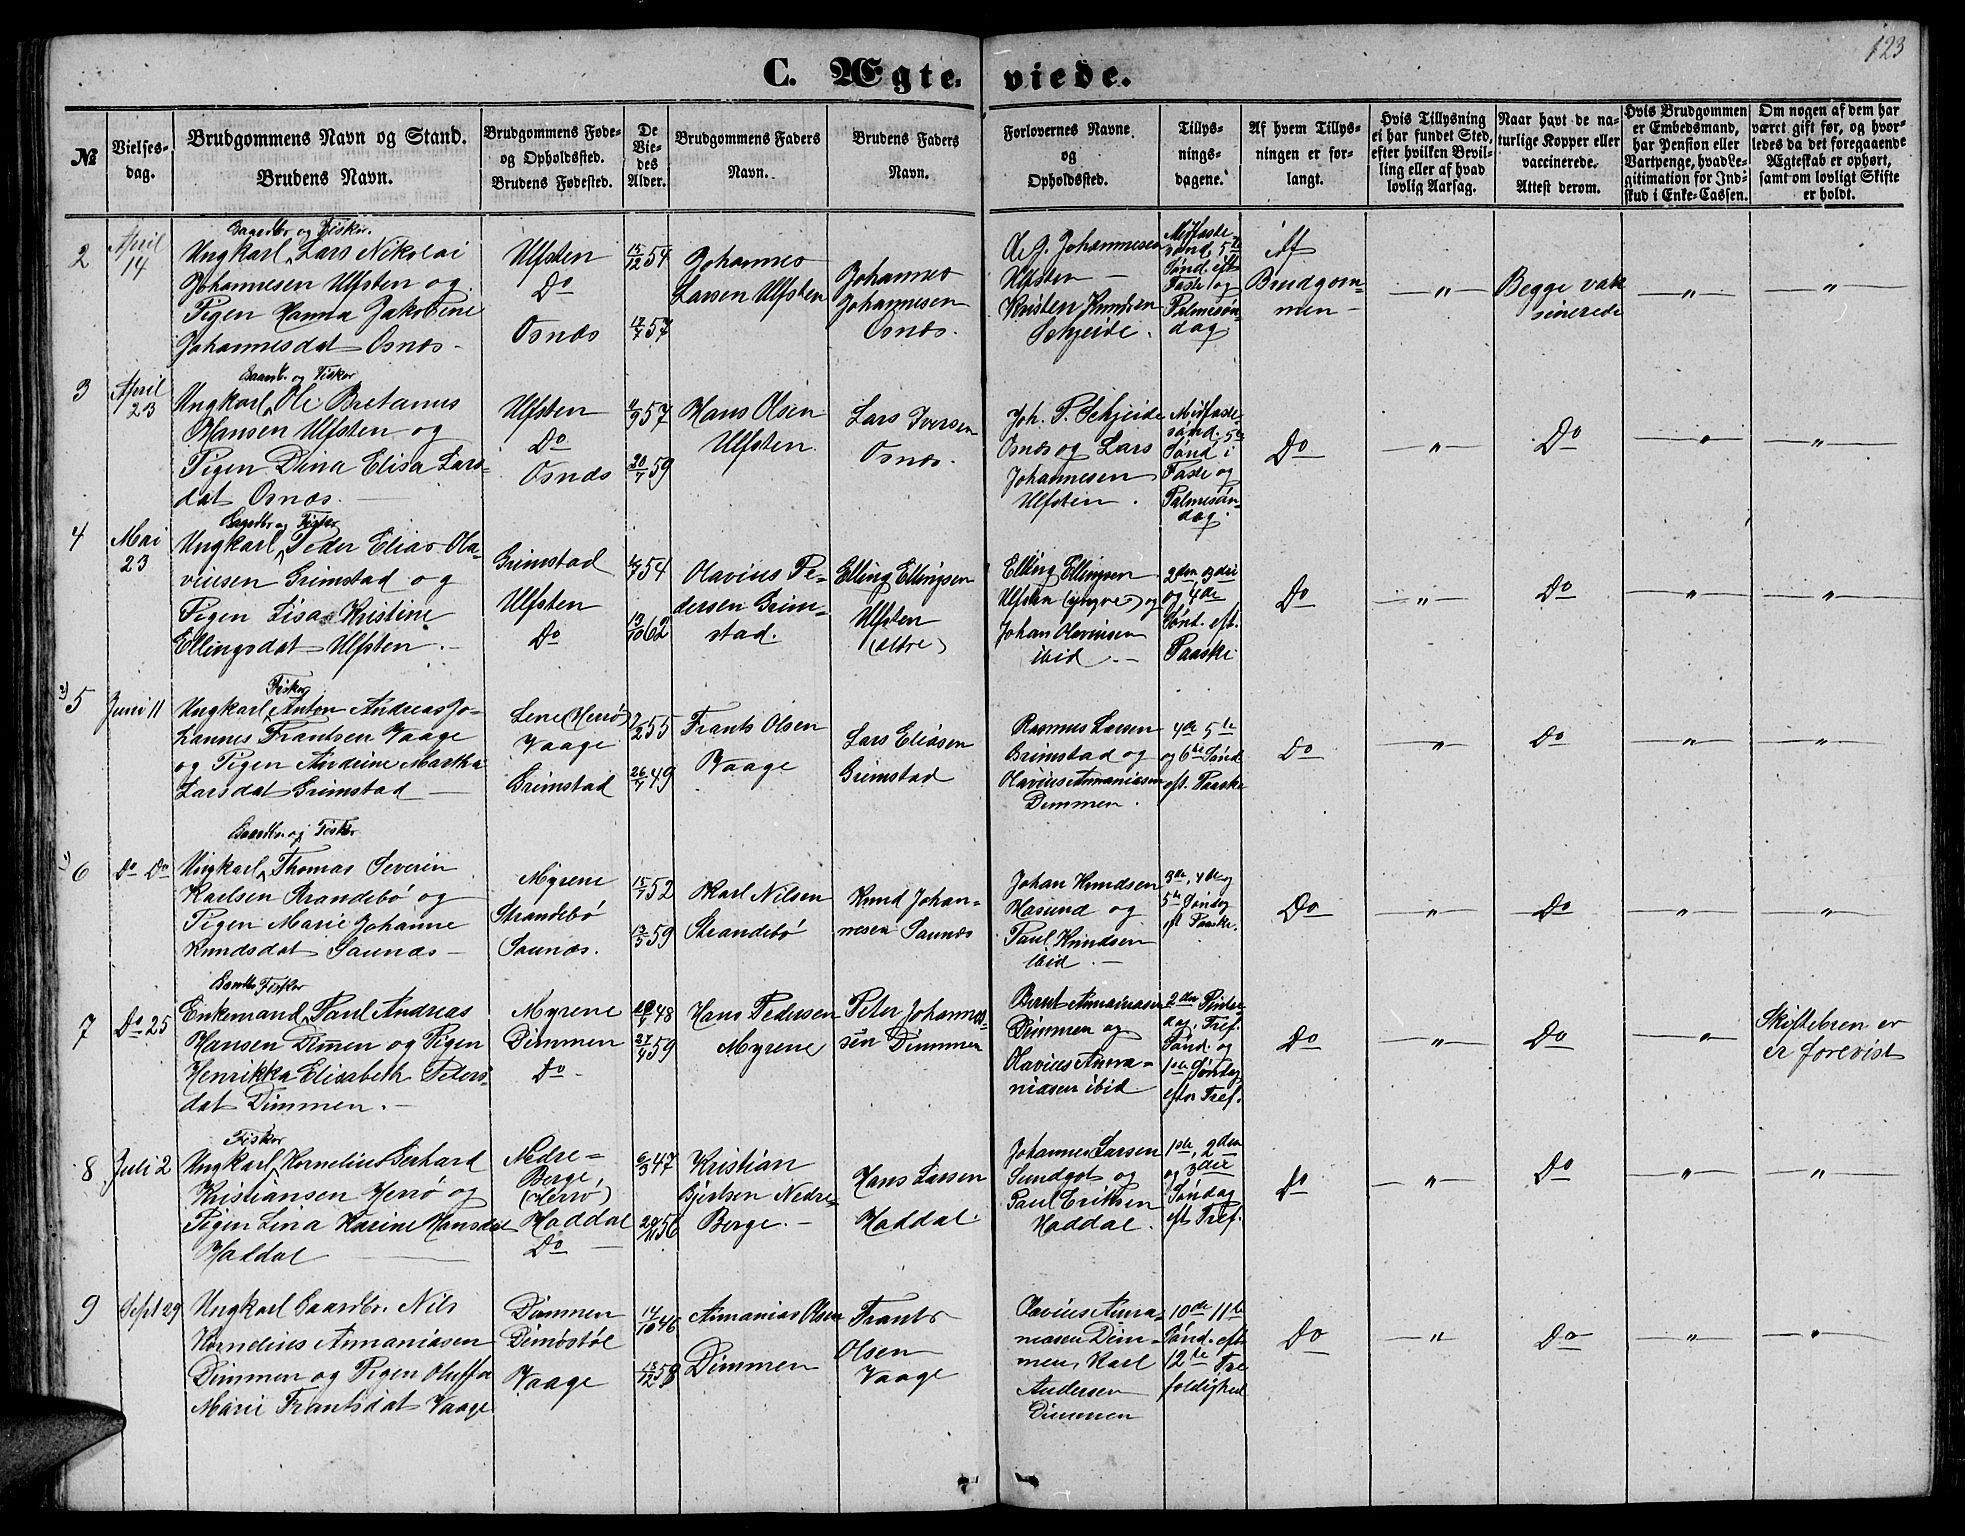 123
C. Ægte-viede.
№
Vielses-
dag.
Brudgommens Navn og Stand.
Brudens Navn.
Brudgommens Føde-
og Opholdssted.
Brudens Fødested.
De
Vie-
des
Alder.
Brudgommens Faders
Navn.
Brudens Faders
Navn.
Forlovernes Navne
og
Opholdssted.
Tillys-
nings-
dagene.
Af hvem Tillys-
ningen er for-
langt.
Hvis Tillysning
ei har fundet Sted,
efter hvilken Bevil-
ling eller af hvad
lovlig Aarsag.
Naar havt de na-
turlige Kopper eller
vaccinerede.
Attest derom.
Hvis Brudgommen
er Embedsmand,
har Pension eller
Vartpenge, hvad Le-
gitimation for Ind-
skud i Enke-Cassen.
Om nogen af dem har
været gift før, og hvor-
ledes da det foregaaende
Ægteskab er ophørt,
samt om lovligt Skifte
er holdt.
2
April
14
og Fisker
Ungkarl Lars Nikolai
Johannesen Ulfsten og
Pigen Hanna Jakobine
Johannesdat Osnæs -
Ulfsten
Do
Osnæs
15/12 54
12/7 57
Johannes
Larsen Ulfsten
Johannes
Johannesen
Osnæs.
Johannesen
Ulfsten -
Kristen Knudsen
Schjeide.
Midfaste-
sønd, 5te
Sønd. eft
Faste og
Palmesøn-
dag
Af
Brudgom-
men -
"
Begge vak
sinerede
"
"
3
April
23
og Fisker
Ungkarl Ole Bretanus
Hansen Ulfsten og
Pigen Dina Elisa Lars-
dat Osnæs. -
Ulfsten
Do
Osnæs
11/9 57
20/7 59
Hans Olsen
Ulfsten
Lars Iversen
Osnæs.
Joh. P. Schjeide
Osnæs og Lars
Johannesen
Ulfsten.
Midfaste-
sønd. 5te
Sønd i
Faste og
Palmesøn-
dag.
Do
"
Do
"
"
4
Mai
23
og Fisker
Ungkarl Peder Elias Ola-
viusen Grimstad og
Pigen Lisa Kristine
Ellingsdat Ulfsten. -
Grimstad
Ulfsten
Do
54
13/10 62
Olavius Pe-
dersen Grim-
stad.
Elling Ellingsen
Ulfsten
(ældre)
Elling Ellingsen
Ulfsten (yngre) og
Johan Olaviusen
ibid. -
2den 3die
og 4de
Sønd. eft.
Paaske
Do
"
Do
"
"
5
Juni 11
Fisker
Ungkarl Anton Andreas Jo-
hannes Frantsen Vaage
og Pigen Andrine Martha
Larsdat Grimstad -
Lene (Herrø)
Vaage
Grimstad
7/2 55
26/7 49
Frants Olsen
Vaage
Lars Eliasen
Grimstad
Rasmus Larsen
Grimstad og
Olavius Annaniasen
Dimmen.
4de 5te
og 6te Sønd
eft. Paaske
Do
"
Do
"
"
6
Do Do
og Fisker
Ungkarl Thomas Severin
Karlsen Strandebø og
Pigen Marie Johanne
Knudsdat Saunæs -
Myrene
Strandebø
Saunæs.
15/7 52
13/5 59
Karl Nilsen
Strandebø
Knud Johan-
nesen Saunæs
Johan Knudsen
Hasund og
Paul Knudsen
ibid. -
3de, 4de og
5te Søndag
eft Paaske.
Do
"
Do
"
"
7
Do 25
Fisker
Enkemand Paul Andreas
Hansen Dimen og Pigen
Henrikka Elisabeth Peters-
dat Dimmen. -
Myrene
Dimmen
Do
48
27/4 59
Hans Pedersen
Myrene
Peter Johannes-
sen Dimmen
Bernt Annaniasen
Dimmen og
Olavius Anna-
niasen ibid
2den Pintse
dag, Tref.
Sønd. og
1ste Søndag
efter Tref.
Do
"
Do
"
Skiftebren er
er forevist
8
Juli 2
Fisker
Ungkarl Kornelius Gerhard
Kristiansen Herrø og
Pigen Lina Karine Hansdat
Haddal
Nedre-
Berge,
(Herrø)
Haddal
Do -
6/3 47
56
Kristian
Bjertsen Nedre-
Berge. -
Hans Larsen
Haddal
Johannes Larsen
Sundgot og
Paul Eriksen
Haddal.
1ste, 2den
og 3die
Søndag
eft Tref.
Do
"
Do
"
"
9
Sept 29
Ungkarl Gaardbr. Nils
Kornelius Annaniasen
Dimmen og Pigen Oluffa
Marie Frantsdat Vaage
Dimmen
Dimøstøl
Vaage
14/10 46
18/12 58
Annanias Olsen
Dimmen
Frants
Olsen
Vaage
Olavius Anna-
niasen Dim-
men, Karl
Andersen
Dimmen
10de 11te
Sønd. eft
12te Tre
foldighed
Do
"
Do
"
"